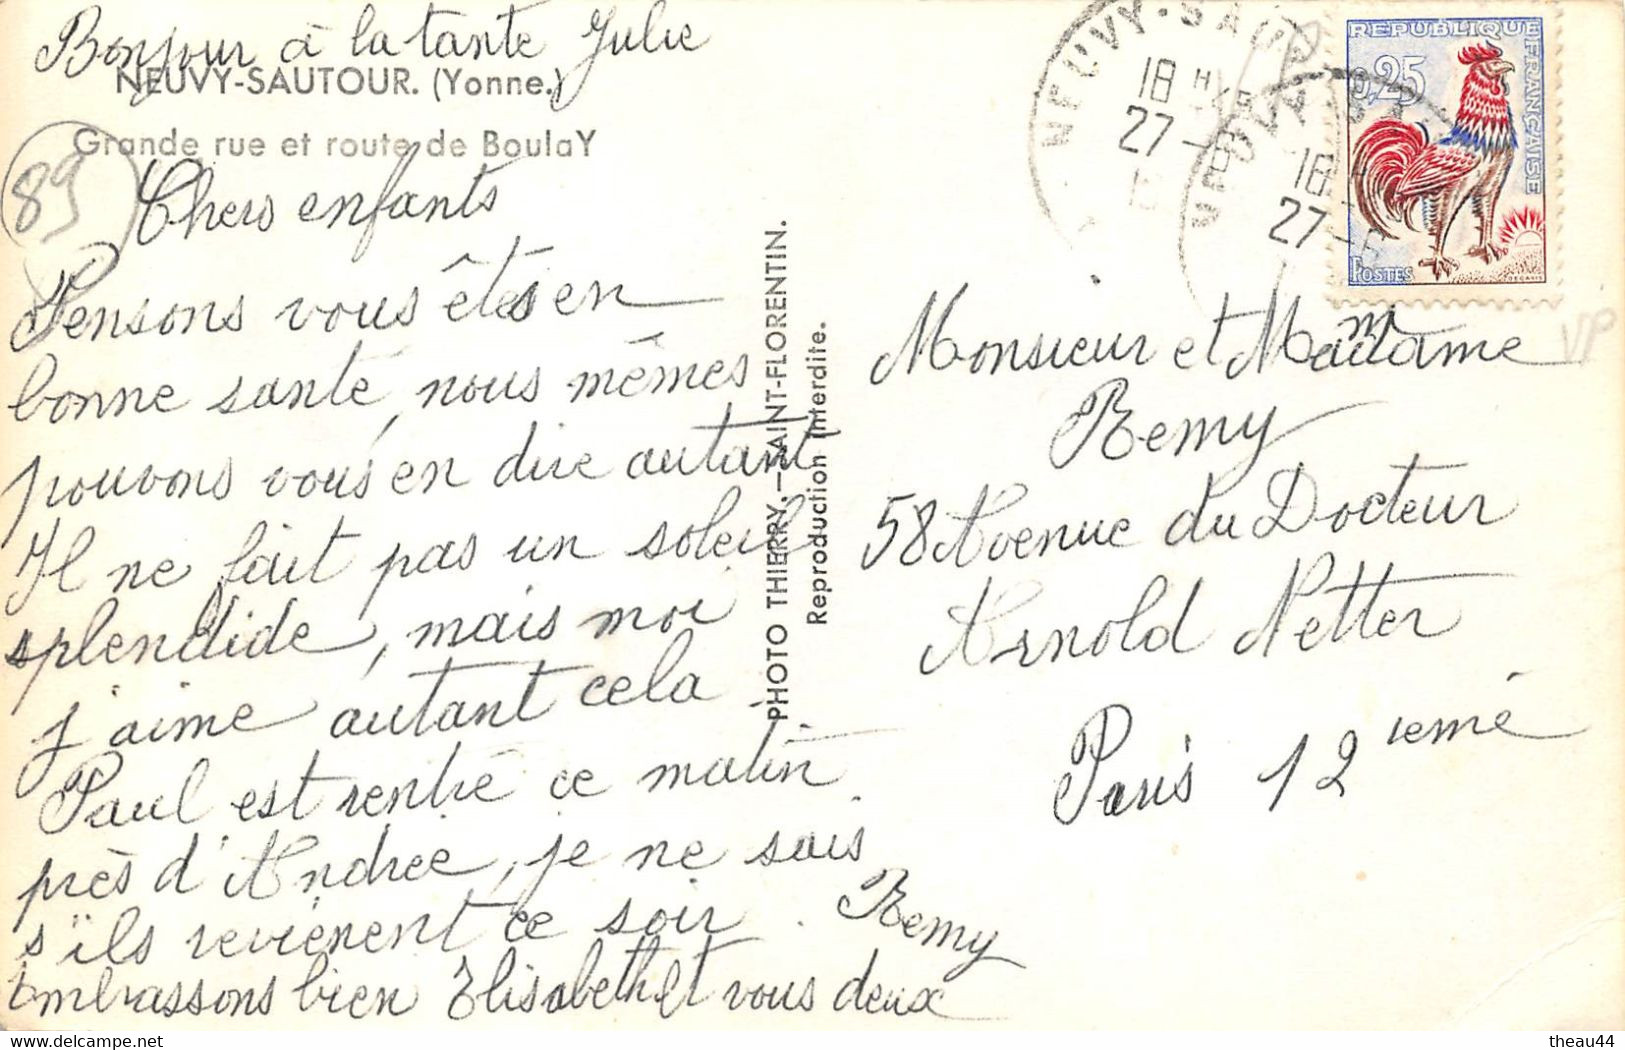 Bonjour à la tante Julie
NEUVY-SAUTOUR. (Yonne.)
Grande rue et route de BoulaY
89
Chers enfants
Pensons vous êtes en
bonne santé, nous mêmes
pouvons vous en dire autant
Il ne fait pas un soleil
splendide, mais moi
j'aime autant cela
Paul est rentré ce matin
près d'Andrée, je ne sais
s'ils revienent ce soir. Remy
Embrassons bien Elisabeth et vous deux
PHOTO THIERRY.—SAINT-FLORENTIN.
Reproduction interdite.
NEUVY-SAU
18 H
27 -
18 H
27 -
REPUBLIQUE FRANÇAISE
0,25
POSTES
DECARIS
VP
Monsieur et Madame
Remy
58 Avenue du Docteur
Arnold Netter
Paris 12 ieme
delcampe.net
theau44